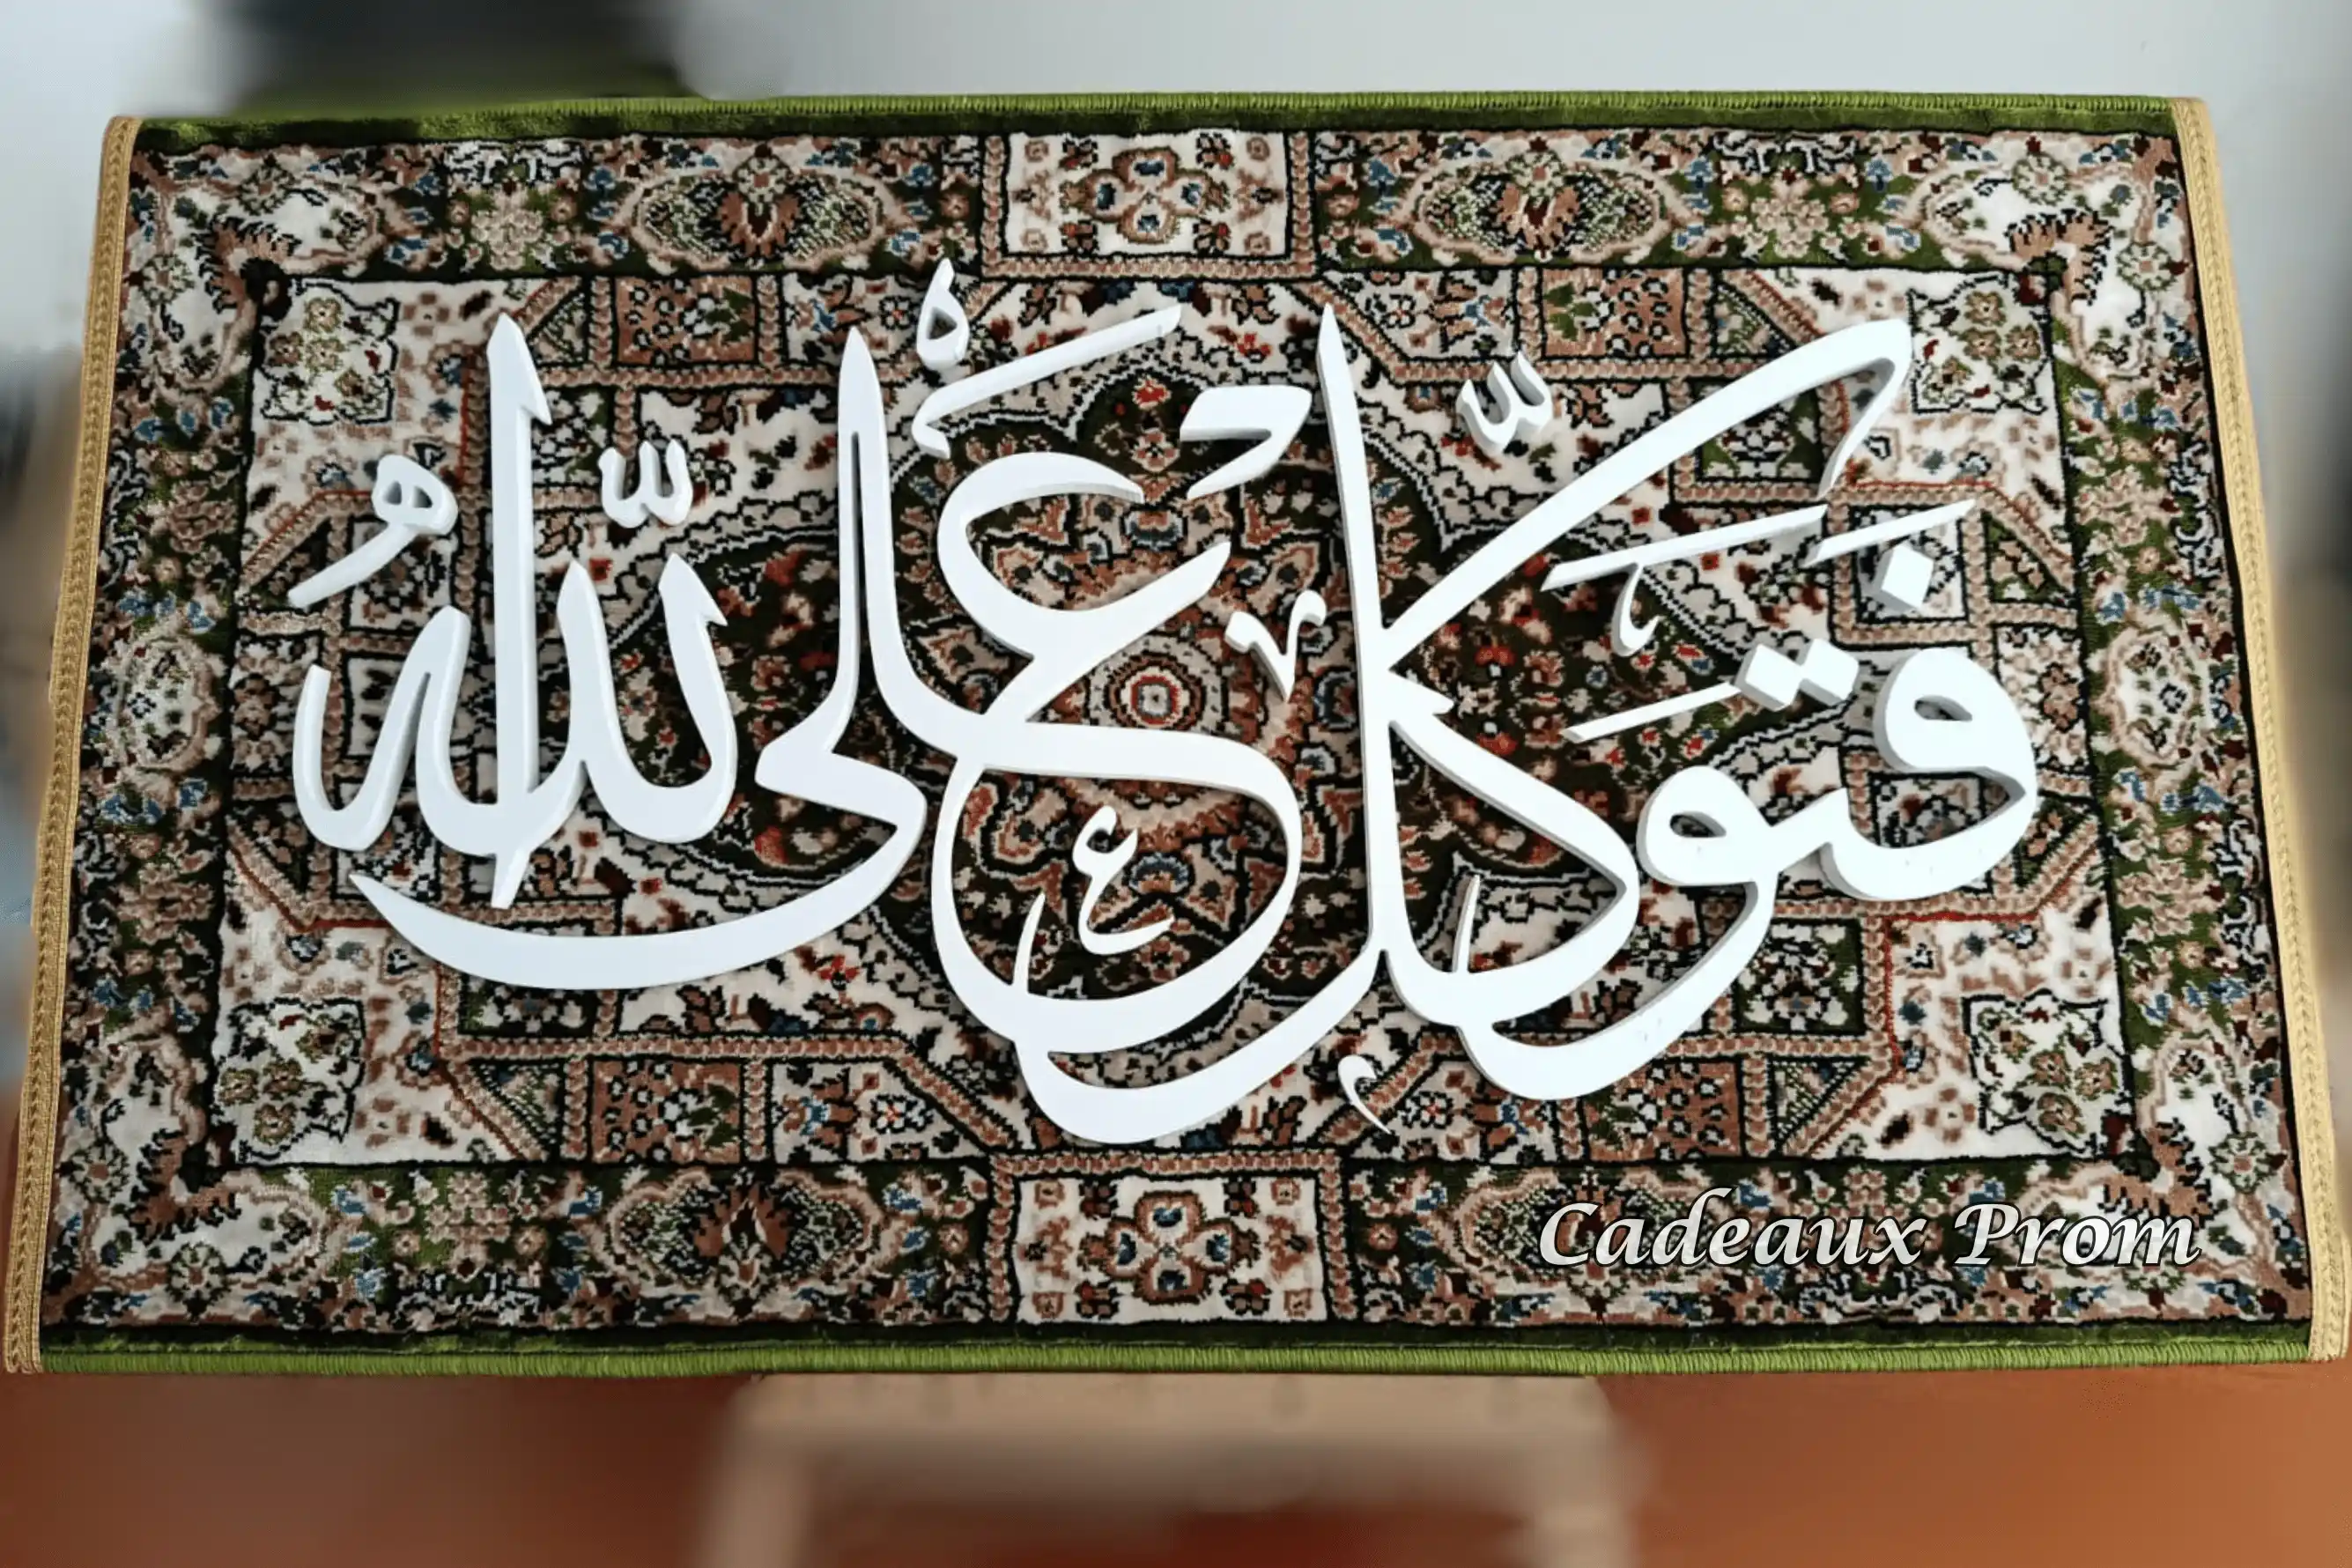 فَتَوَكَّلْ عَلَى اللّٰهُ
Cadeaux Prom